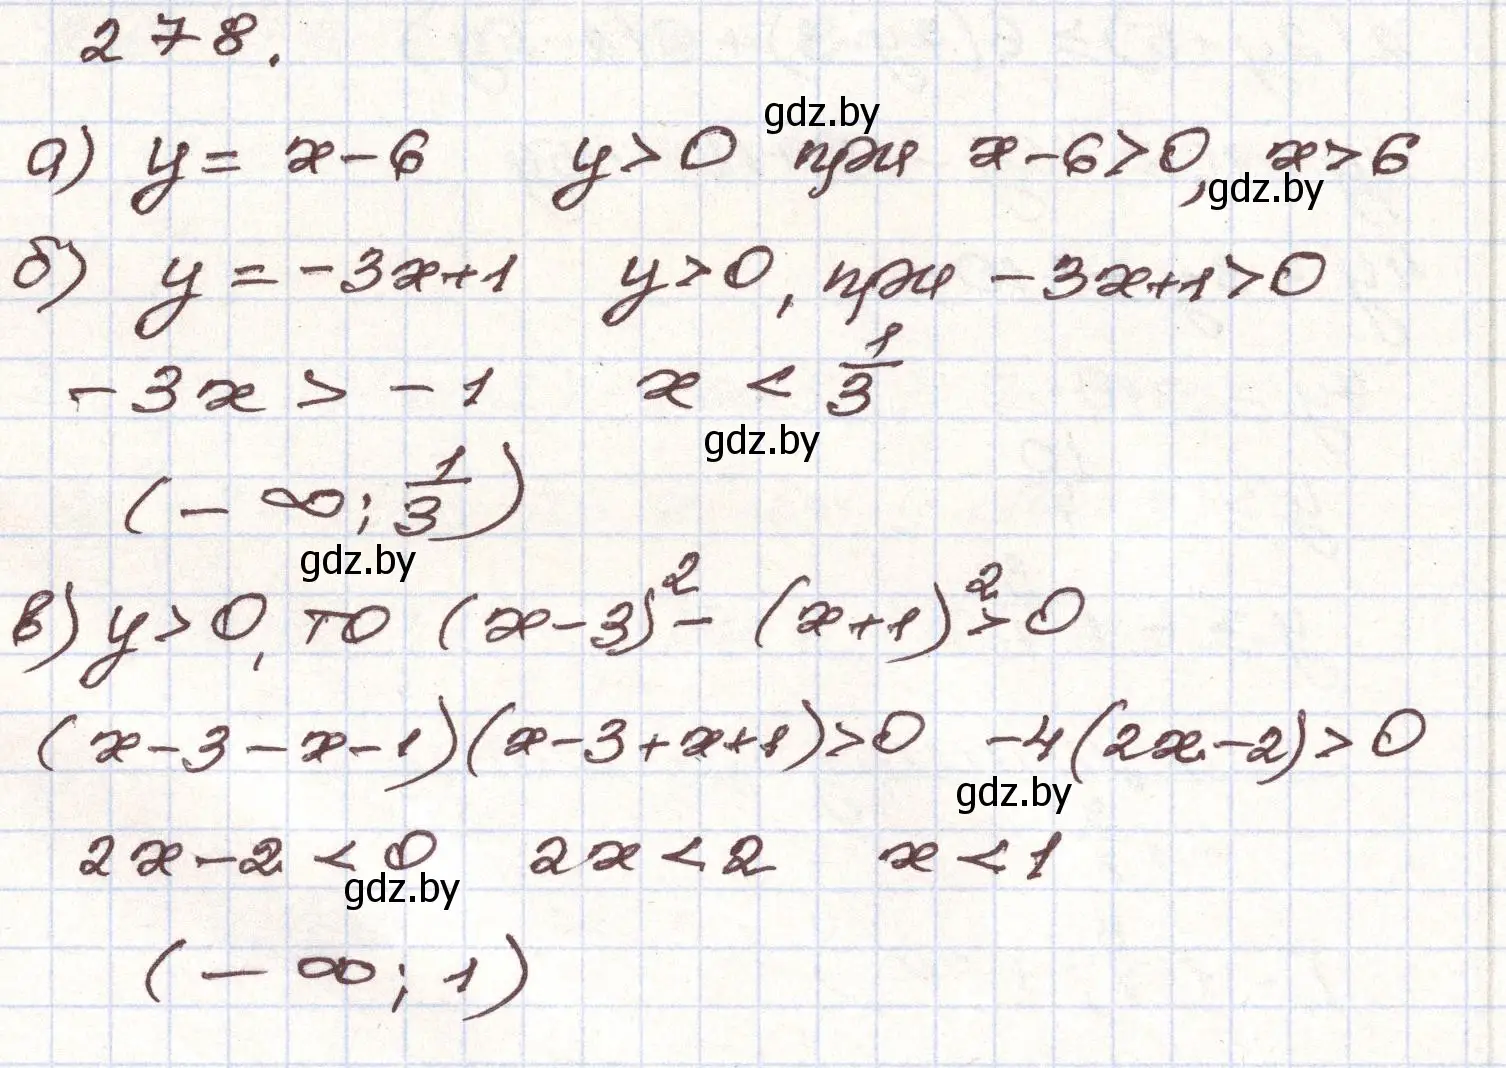 278.
gdz.by
а) y = x - 6 y > 0 при x - 6 > 0, x > 6
gdz.by
б) y = -3x+1 y > 0, при -3x+1 > 0
-3x > -1 x < 1/3
gdz.by
(-∞; 1/3)
gdz.by
в) y > 0, то (x-3)² - (x+1)² > 0
(x-3-x-1)(x-3+x+1) > 0 -4(2x-2) > 0
gdz.by
2x-2 < 0 2x < 2 x < 1
gdz.by
(-∞; 1)